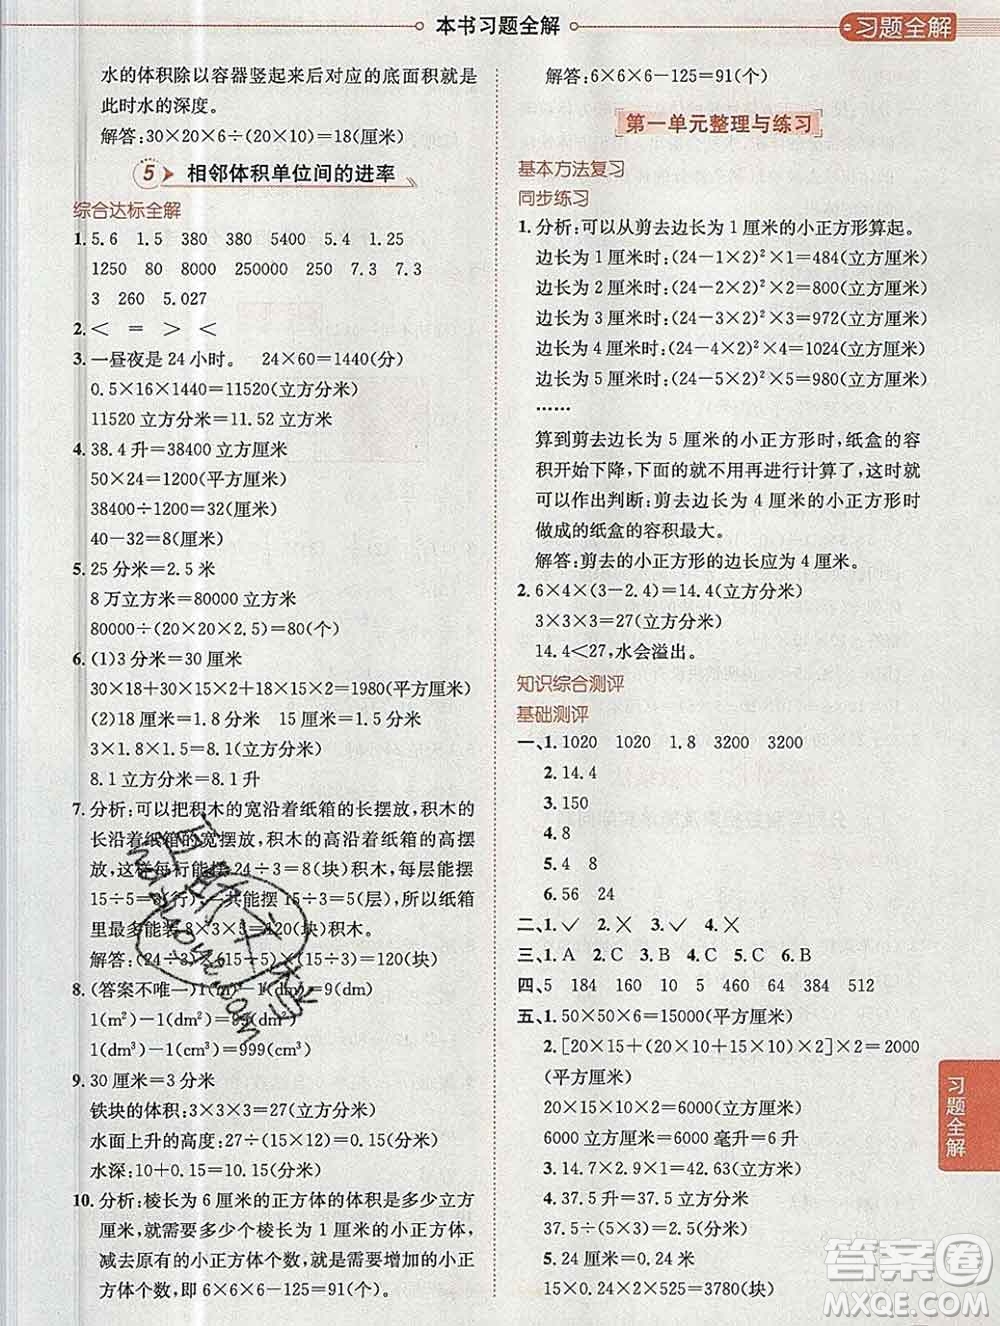 本书习题全解
习题全解
水的体积除以容器竖起来后对应的底面积就是
此时水的深度。
解答:30×20×6÷(20×10)=18(厘米)
5 相邻体积单位间的进率
综合达标全解
1. 5.6 1.5 380 380 5400 5.4 1.25
1250 80 8000 250000 250 7.3 7.3
3 260 5.027
2. < = > <
3. 一昼夜是 24 小时。 24×60=1440(分)
0.5×16×1440=11520(立方分米)
11520 立方分米=11.52 立方米
4. 38.4 升=38400 立方厘米
50×24=1200(平方厘米)
38400÷1200=32(厘米)
40-32=8(厘米)
5. 25 分米=2.5 米
8 万立方米=80000 立方米
80000÷(20×20×2.5)=80(个)
6. (1)3 分米=30 厘米
30×18+30×15×2+18×15×2=1980(平方厘米)
(2)18 厘米=1.8 分米 15 厘米=1.5 分米
3×1.8×1.5=8.1(立方分米)
8.1 立方分米=8.1 升
7. 分析:可以把积木的宽沿着纸箱的长摆放,积木的
长沿着纸箱的宽摆放,积木的高沿着纸箱的高摆
放,这样每行能摆 24÷3=8(块)积木,每层能摆
15÷5=3(行),一共能摆 15÷3=5(层),所以纸箱
里最多能装 8×3×5=120(块)积木。
解答:(24÷3)×(15÷5)×(15÷3)=120(块)
8. (答案不唯一)1(m)-1(dm)=9(dm)
1(m²)-1(dm²)=99(dm²)
1(dm³)-1(cm³)=999(cm³)
9. 30 厘米=3 分米
铁块的体积:3×3×3=27(立方分米)
水面上升的高度:27÷(12×5)=0.45(分米)
水深:10+0.45=10.45(分米)
10. 分析:棱长为 6 厘米的正方体的体积是多少立方
厘米,就需要多少个棱长为 1 厘米的小正方体,
减去原有的小正方体个数,就是需要增加的小正
方体个数,即 6×6×6-125=91(个)
解答:6×6×6-125=91(个)
第一单元整理与练习
基本方法复习
同步练习
1. 分析:可以从剪去边长为 1 厘米的小正方形算起。
边长为 1 厘米时:(24-1×2)²×1=484(立方厘米)
边长为 2 厘米时:(24-2×2)²×2=800(立方厘米)
边长为 3 厘米时:(24-3×2)²×3=972(立方厘米)
边长为 4 厘米时:(24-4×2)²×4=1024(立方厘米)
边长为 5 厘米时:(24-5×2)²×5=980(立方厘米)
……
算到剪去边长为 5 厘米的小正方形时,纸盒的容
积开始下降,下面的就不用再进行计算了,这时就
可以作出判断:剪去边长为 4 厘米的小正方形时
做成的纸盒的容积最大。
解答:剪去的小正方形的边长应为 4 厘米。
2. 6×4×(3-2.4)=14.4(立方厘米)
3×3×3=27(立方厘米)
14.4<27,水会溢出。
知识综合测评
基础测评
一、1. 1020 1020 1.8 3200 3200
2. 14.4
3. 150
4. 8
5. 4 8
6. 56 24
二、1. ✓ 2. × 3. ✓ 4. ×
三、1. A 2. C 3. B 4. C 5. C 6. B
四、5 184 160 10 5 460 64 384 512
五、1. 50×50×6=15000(平方厘米)
2. [20×15+(20×10+15×10)×2]×2=2000
(平方厘米)
20×15×10×2=6000(立方厘米)
6000 立方厘米=6000 毫升=6 升
3. 14.4÷(2×2)×4=14.4(立方分米)
4. 37.5 升=37.5 立方分米
37.5÷(5×3)=2.5(分米)
5. 24 厘米=0.24 米
15×0.24×2×525=3780(块)
习题全解
答案圈
MXQE.COM